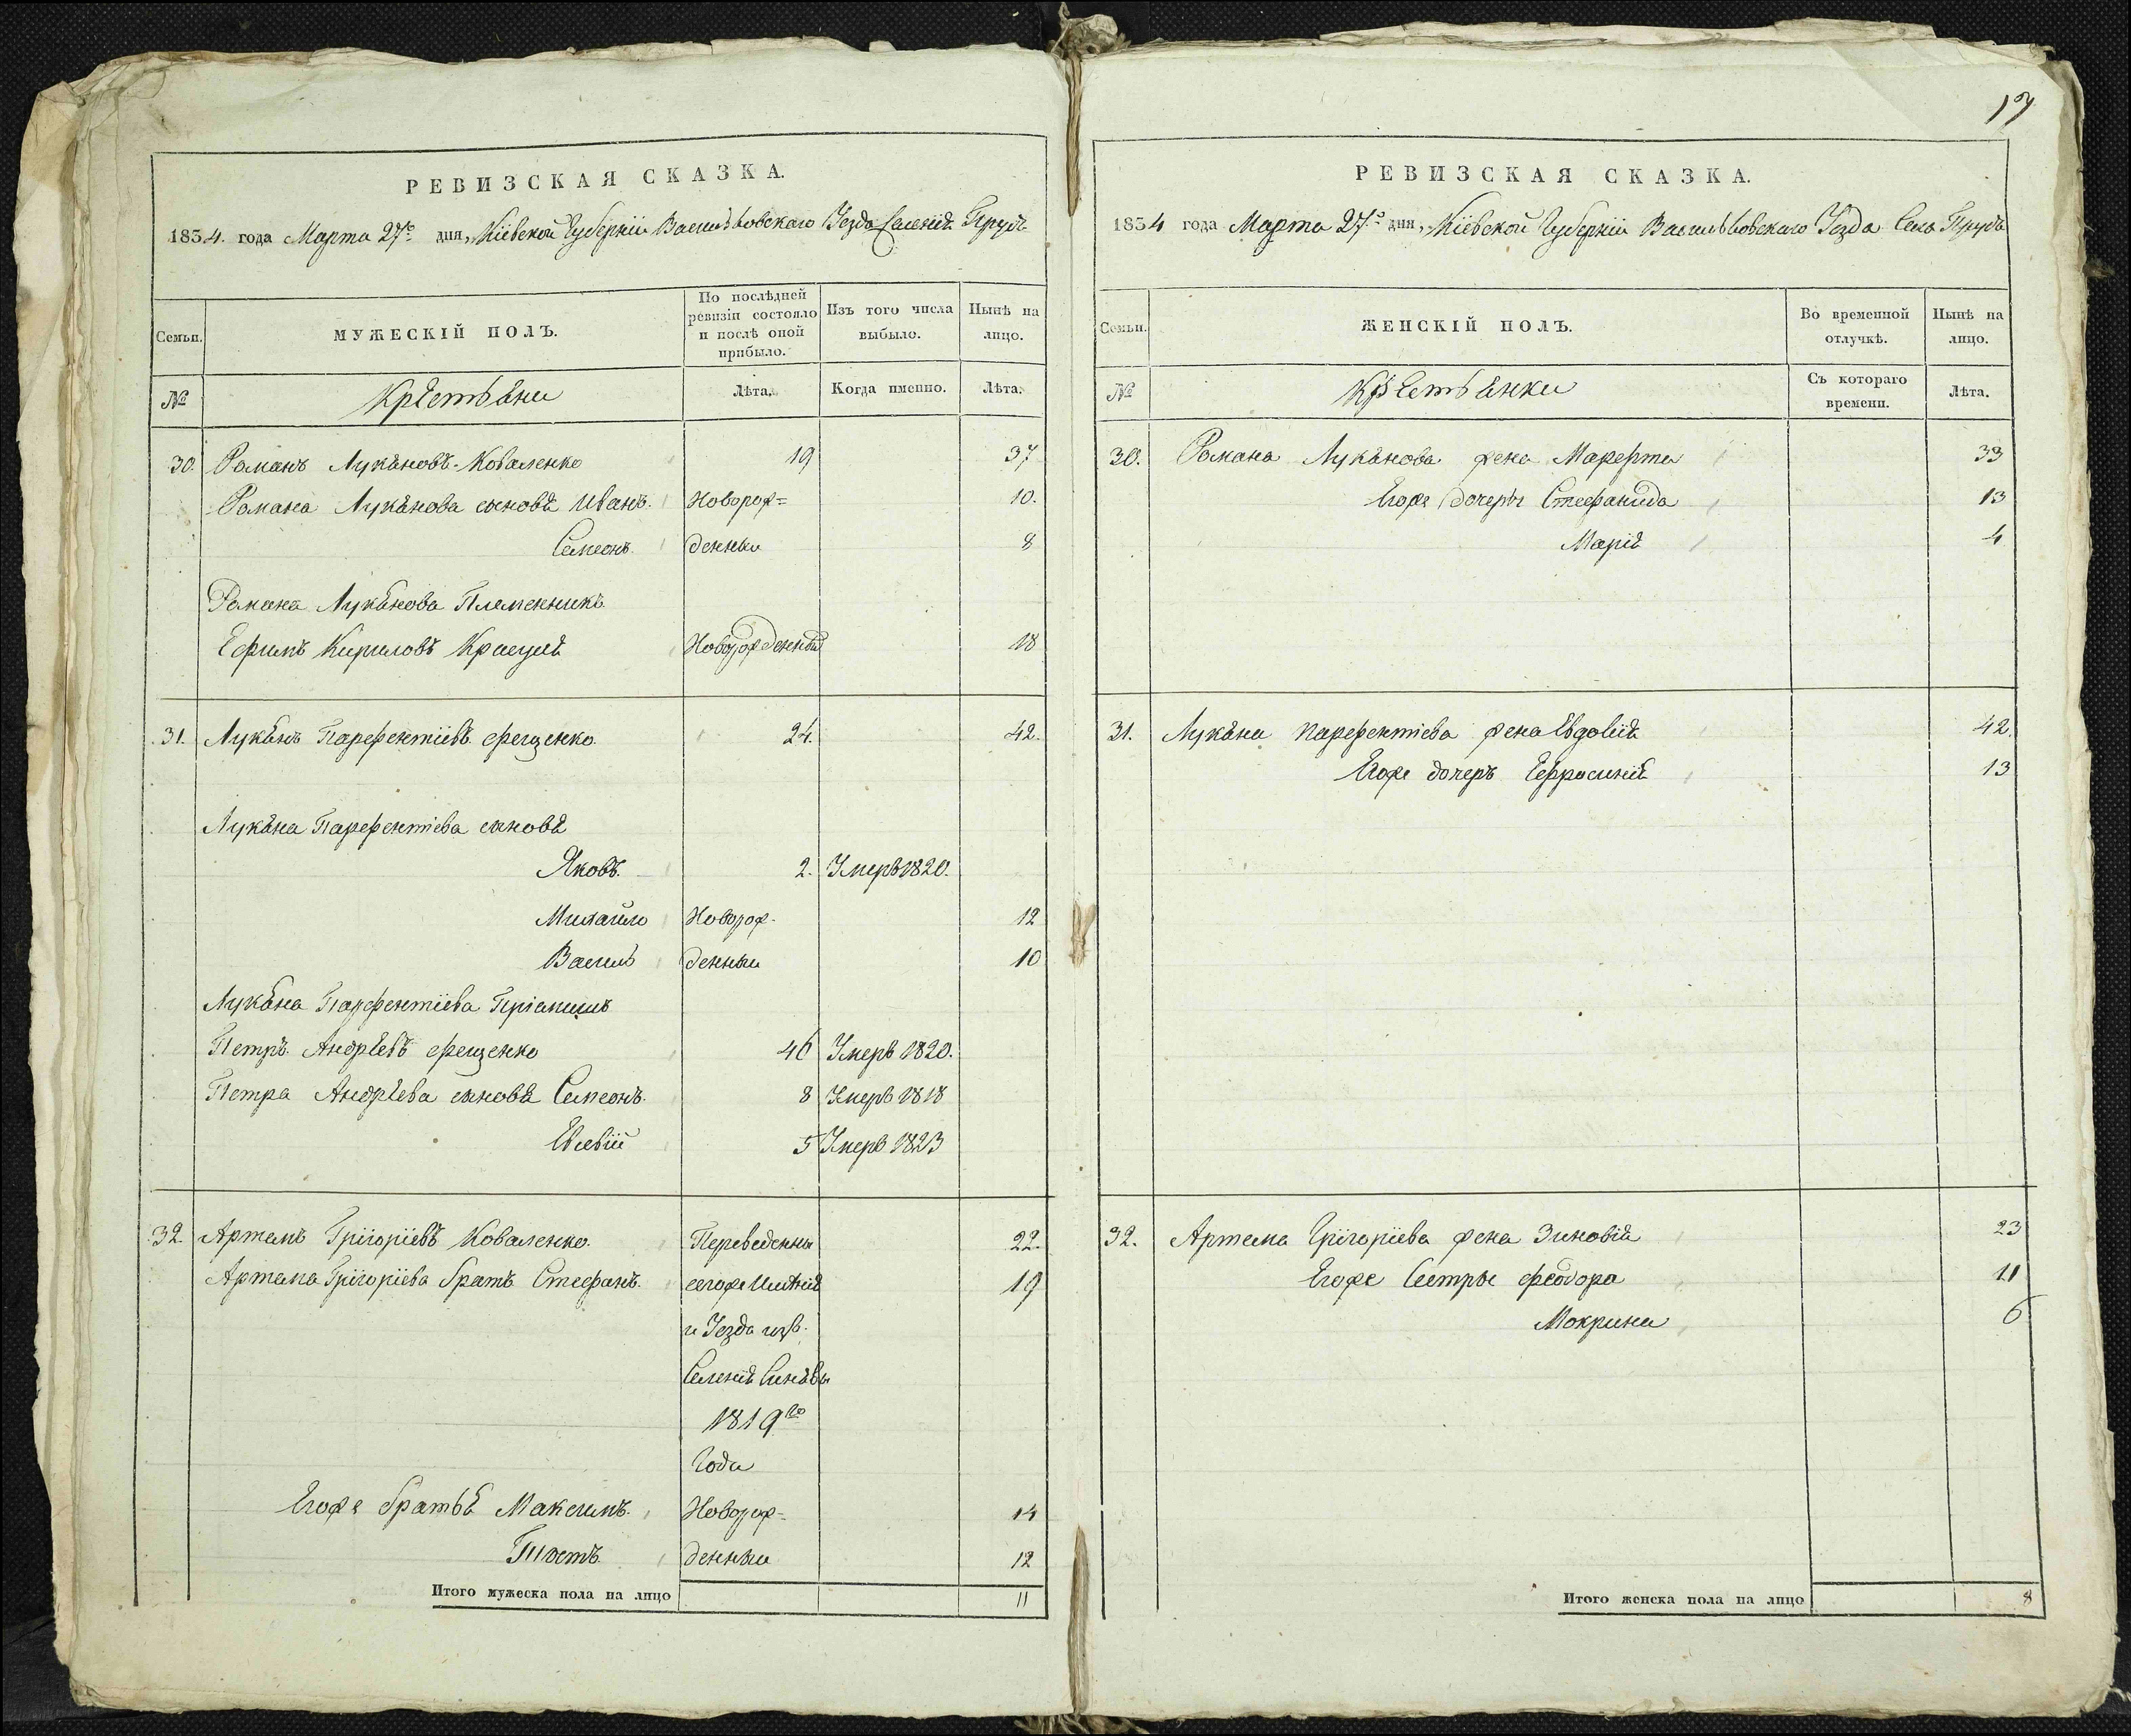 РЕВИЗСКАЯ СКАЗКА.
1834. года Марта 27го дня, Кіевской Губерніи Васильковскаго Уезда Селенія Пруды
Семьи.
МУЖЕСКІЙ ПОЛЪ.
По послѣдней ревизіи состояло и послѣ оной прибыло.
Изъ того числа выбыло.
Нынѣ на лицо.
№ Крестьяни Лѣта. Когда именно. Лѣта.
30. Романъ Лукяновъ Коваленко 19 37
Романа Лукянова сыновя Иванъ. Новорож= 10.
Семенъ денныи 8
Романа Лукянова Племенникъ
Ефимъ Кириловъ Новорожденный 18
31. Лукянъ Парфентіевъ Фещенко. 24. 42.
Лукяна Парфентіева сыновя
Яковъ. 2. Умеръ 1820.
Михайло Новорож- 12
Василь денныи 10
Лукяна Парфентіева
Петръ Андреевъ Фещенко 46 Умеръ 1820.
Петра Андреева сыновя Семенъ. 8 Умеръ 1818
Евсевій 5 Умеръ 1823
32. Артемъ Григоріевъ Коваленко. Переведенны 22.
Артема Григоріева братъ Стефанъ. сегоже Имѣнія 19
и Уезда изъ
Селенія Синявы
1819го
Года
Егоже братья Максимъ. Новорож- 14
денныи 12
Итого мужеска пола на лицо 11
17
РЕВИЗСКАЯ СКАЗКА.
1834 года Марта 27го дня, Кіевской Губерніи Васильковскаго Уезда Села Пруды
Семьи.
ЖЕНСКІЙ ПОЛЪ.
Во временной отлучкѣ.
Нынѣ на лицо.
№ Крестьянки Съ котораго времени. Лѣта.
30. Романа Лукянова жена Марфа 33
Егоже дочеры Стефанида 13
Марія 4
31. Лукяна Парфентіева жена Евдокія 42.
Егоже дочеръ Ефросинія 13
32. Артема Григоріева жена Зиновія 23
Егоже Сестры Феодора 11
Мокрина 6
Итого женска пола на лицо 8